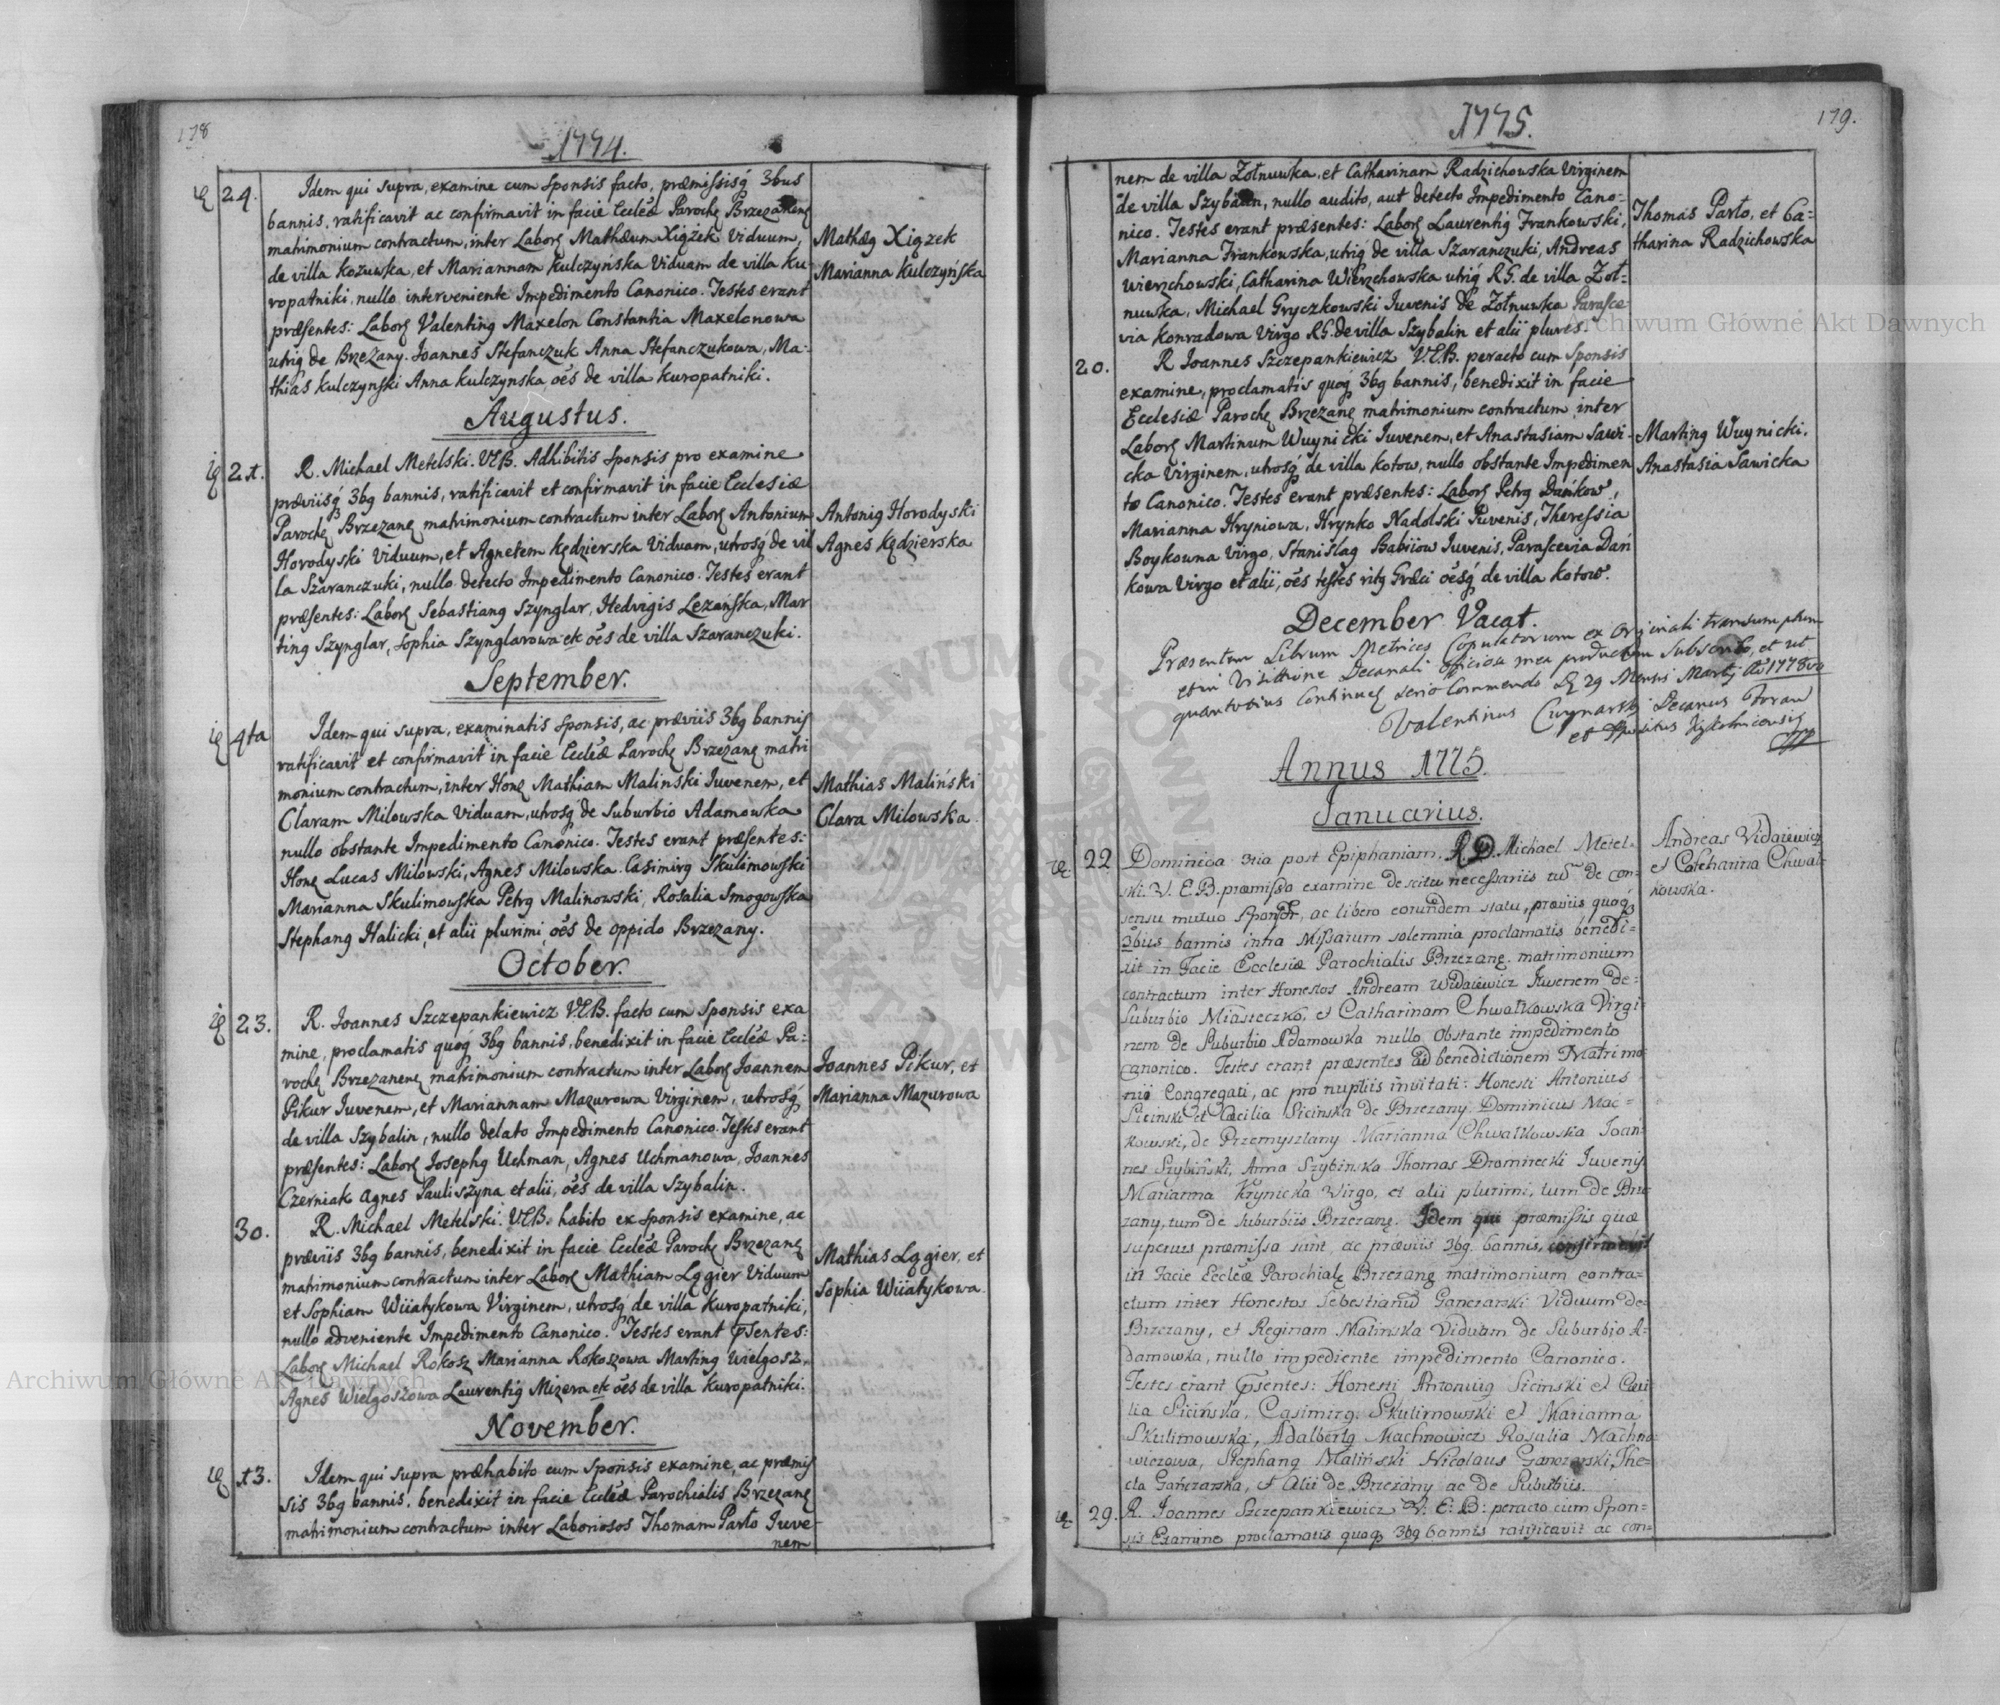 178
1774.
24. Idem qui supra, examine cum sponsis facto, præmissisq 3bus
bannis, ratificavit ac confirmavit in facie Eccleæ Paroche Brzezanene
matrimonium contractum, inter Labors Mathæum Xiązek Viduum,
de villa kozuwka, et Mariannam kulczyńska Viduam de villa ku-
ropatniki, nullo interveniente Impedimento Canonico. Testes erant
præsentes: Labors Valenting Maxelon Constantia Maxelonowa
utriq de Brzezany. Joannes Stefanczuk Anna Stefanczukowa, Ma-
thias kulczynski Anna kulczynska oēs de villa kuropatniki.
Mathæg Xiązek
Marianna Kulczyńska
Augustus.
21. R. Michael Metelski. V.E.B. Adhibitis sponsis pro examine
præviisq 3bg bannis, ratificavit et confirmavit in facie Ecclesiæ
Paroche Brzezane matrimonium contractum inter Labors Antonium
Horodyski Viduum, et Agnetem kędzierska Viduam, utrosq de vil
la Szaranczuki, nullo detecto Impedimento Canonico. Testes erant
præsentes: Labors Sebastiang Szynglar, Hedvigis Lezańska, Mar
ting Szynglar, Sophia Szynglarowa etc oēs de villa Szaranczuki.
Antonig Horodyski
Agnes kędzierska
September.
4ta Idem qui supra, examinatis sponsis, ac præviis 3bg bannis
ratificavit et confirmavit in facie Eccleæ Paroche Brzezane matri
monium contractum, inter Hons Mathiam Malinski Iuvenem, et
Claram Milowska Viduam, utrosq de Suburbio Adamowka
nullo obstante Impedimento Canonico. Testes erant præsentes:
Hons Lucas Milowski, Agnes Milowska. Casimirg Skulimowski
Marianna Skulimowska Petrg Malinowski, Rosalia Smogowska
Stephang Halicki, et alii plurimi, oēs de oppido Brzezany.
Mathias Maliński
Clara Milowska
October.
23. R. Joannes Szczepankiewicz V.E.B. facto cum Sponsis exa
mine, proclamatis quoq 3bg bannis, benedixit in facie Eccleæ Pa-
roche Brzezanene matrimonium contractum inter Labors Joannem
Pikur Iuvenem, et Mariannam Mazurowa Virginem, utrosq
de villa Szybalin, nullo delato Impedimento Canonico. Testes erant
præsentes: Labors Josephg Uchman, Agnes Uchmanowa, Joannes
Czerniak Agnes Pauliszyna et alii, oēs de villa Szybalin.
Joannes Pikur, et
Marianna Mazurowa
30. R. Michael Metelski. V.E.B. habito ex sponsis examine, ac
præviis 3bg bannis, benedixit in facie Eccleæ Paroche Brzezane
matrimonium contractum inter Labors Mathiam Lągier Viduum
et Sophiam Wiiatykowa Virginem, utrosq de villa kuropatniki,
nullo adveniente Impedimento Canonico. Testes erant psentes:
Labors Michael Rokosz Marianna Rokoszowa Marting Wielgosz,
Agnes Wielgoszowa Laurentig Mizera etc oēs de villa kuropatniki.
Mathias Lągier, et
Sophia Wiiatykowa
November.
13. Idem qui supra præhabito cum sponsis examine, ac præmis
sis 3bg bannis, benedixit in facie Eccleæ Parochialis Brzezane
matrimonium contractum inter Laboriosos Thomam Parto Iuve-
nem
1775.
179.
nem de villa Zołnuwka, et Catharinam Radzichowska Virginem
de villa Szybalin, nullo audito, aut detecto Impedimento Cano-
nico. Testes erant præsentes: Labors Laurentig Frankowski,
Marianna Frankowska, utriq de villa Szaranczuki, Andreas
Wierzchowski, Catharina Wierzchowska utriq R.G. de villa Zoł-
nuwka, Michael Gryczkowski Iuvenis de Zołnuwka Parasce-
via konradowa Virgo R.G. de villa Szybalin et alii plures.
Thomas Parto, et Ca-
tharina Radzichowska
20. R Joannes Szczepankiewicz V.E.B. peracto cum Sponsis
examine, proclamatis quoq 3bg bannis, benedixit in facie
Ecclesiæ Paroche Brzezane matrimonium contractum inter
Labors Martinum Wuynicki Iuvenem, et Anastasiam Sawi-
cka Virginem, utrosq de villa kotow, nullo obstante Impedimen
to Canonico. Testes erant præsentes: Labors Petrg Dańkow,
Marianna Hryniowa, Hrynko Nadolski Iuvenis, Theressia
Boykowna Virgo, Stanislag Babiiow Iuvenis, Parascevia Dań
kowa Virgo et alii, oēs testes ritg Græci oēsq de villa kotow.
Marting Wuynicki.
Anastasia Sawicka
December Vacat.
Præsentem Librum Metrices Copulatorum ex Originali transumptum
et in Visitione Decanali officiosa mea productum Subscribo, et ut
continuet serio Commendo D. 29 Mensis Martij 1778vo
Valentinus Decanus
et
Annus 1775.
Januarius.
22 Dominica 3tia post Epiphaniam. R.D. Michael Metel-
ski. V. E. B. præmisso examine de scitu necessariis tum de con-
sensu mutuo Sponsor, ac libero eorundem statu, præviis quoq
3bus bannis intra Missarum solemnia proclamatis benedi-
xit in Facie Ecclesiæ Parochialis Brzezane. matrimonium
contractum inter Honestos Andream Widaiewicz Iuvenem de
Suburbio Miasteczko, et Catharinam Chwałkowska Virgi
nem de Suburbio Adamowka nullo obstante impedimento
canonico. Testes erant præsentes ad benedictionem Matrimo
nii Congregati, ac pro nuptiis invitati: Honesti Antonius
Siciński et Cæcilia Sicinska de Brzezany Dominicus Mac-
kowski, de Przemyszlany Marianna Chwałkowska Joan-
nes Szybiński, Anna Szybinska Thomas Dromirecki Iuvenis
Marianna Krynicka Virgo, et alii plurimi, tum de Brze
zany, tum de Suburbiis Brzezane. Idem qui præmissis quæ
superius præmissa sunt, ac præviis 3bg bannis, confirmavit
in Facie Eccleæ Parochiale Brzezane matrimonium contra-
ctum inter Honestos Sebestianum Ganczarski Viduum de
Brzezany, et Reginam Malinska Viduam de Suburbio A-
damowka, nullo impediente impedimento Canonico.
Testes erant psentes: Honesti Antonius Sicinski et Cæci-
lia Sicińska, Casimirg. Skulimowski et Marianna
Skulimowska, Adalbertg Machnowicz Rosalia Machno-
wiczowa, Stephang Maliński Nicolaus Ganczarski, The-
cla Gańczarska, et Alii de Brzezany ac de Suburbiis.
Andreas Vidaiewicz
et Catharina Chwał-
kowska.
29. R. Joannes Szczepankiewicz V. E. B: peracto cum Spon-
sis Examine proclamatis quoq 3bg bannis ratificavit ac con-
Archiwum Główne Akt Dawnych
Archiwum Główne Akt Dawnych